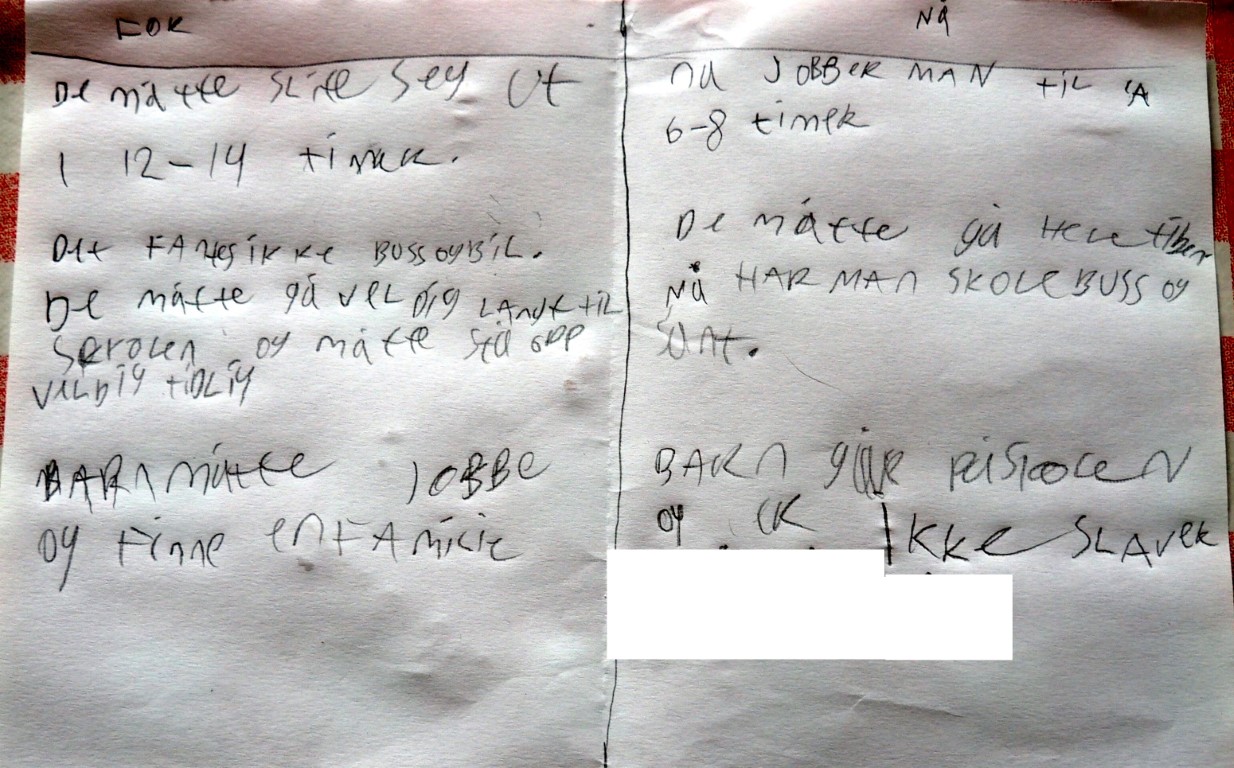 FØR
De måtte slite seg ut
i 12-14 timer.
Det FANtes ikke BUSS OG BiL.
De måtte gå veldig LANgt tiL
skolen og måtte stå opp
veldig tidlig
BARn måtte JOBBe
og finne en FAmilie
NÅ
nå JOBBER MAN tiL CA
6-8 timer
De måtte gå Hele tiden
NÅ HAR MAN SKOLEBUSS og
sånt.
BARn går på skolen
og er ikke SLAVER